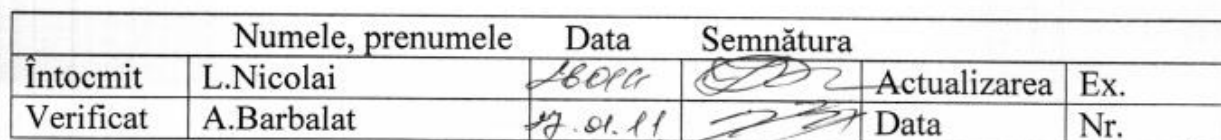 Numele, prenumele Data Semnătura
Întocmit L.Nicolai Actualizarea Ex.
Verificat A.Barbalat 17.01.11 Data Nr.